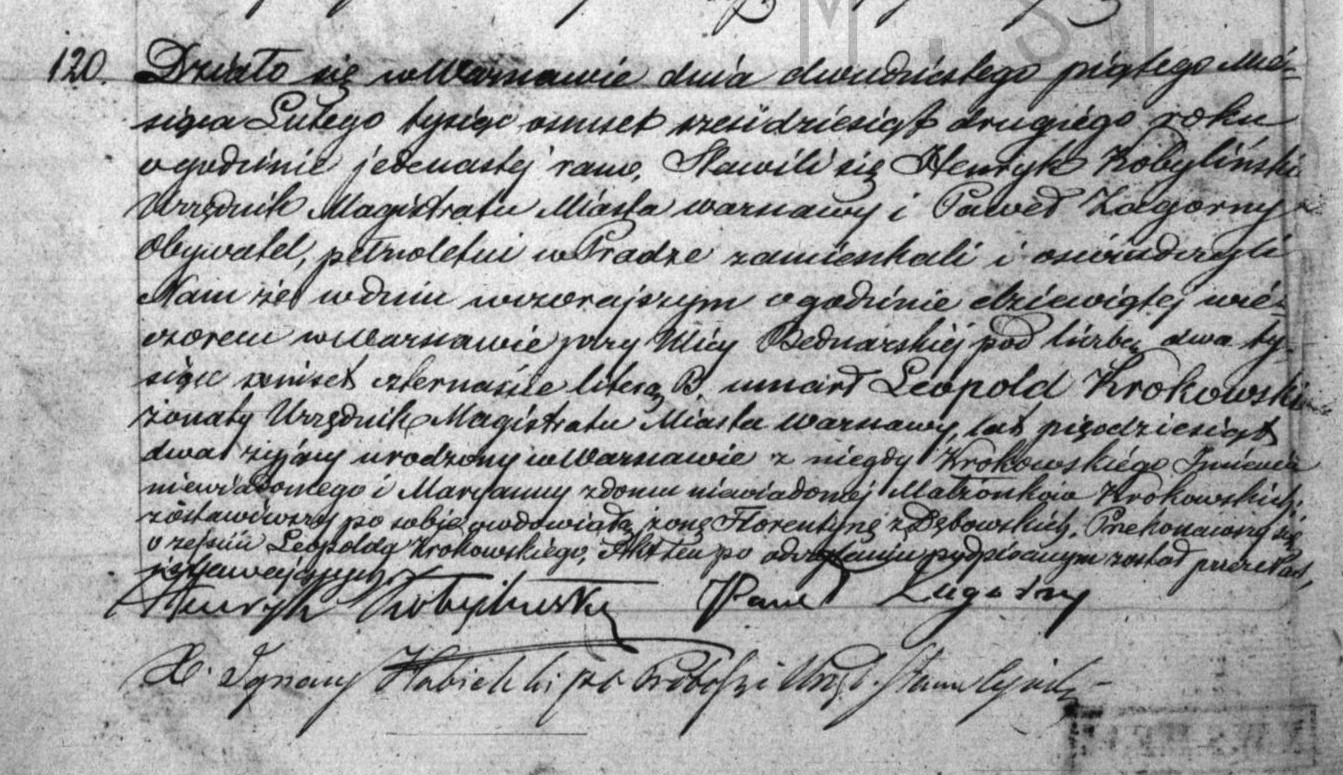 120. Działo się w Warszawie dnia dwudziestego piątego Mie-
siąca Lutego tysiąc osmset sześćdziesiąt drugiégo roku
o godzinie jedenastej rano. Stawili się Henryk Kobyliński
Urzędnik Magistratu Miasta Warszawy i Paweł Zagorny
Obywatel, pełnoletni w Pradze zamieszkali i oświadczyli
Nam że w dniu wczorajszym o godzinie dziewiątej wie-
czorem w Warszawie przy Ulicy Bednarskiéj pod liczbą dwa ty-
siące osmset czternaście literą B, umarł Leopold Krokowski
żonaty Urzędnik Magistratu Miasta Warszawy, lat pięćdziesiąt
dwa żyjący urodzony w Warszawie z niegdy Krokowskiégo Imienia
niewiadomego i Maryanny z domu niewiadomej Małżonków Krokowskich;
zostawiwszy po sobie owdowiałą żonę Florentynę z Dębowskich. Przekonawszy się
o zejściu Leopolda Krokowskiego, Akt ten po odczytaniu podpisanym został przez Nas,
i stawających.
Henryk Kobyliński Paweł Zagorny
X. Ignacy po Proboszcz i Urzęd. Stanu Cywil.